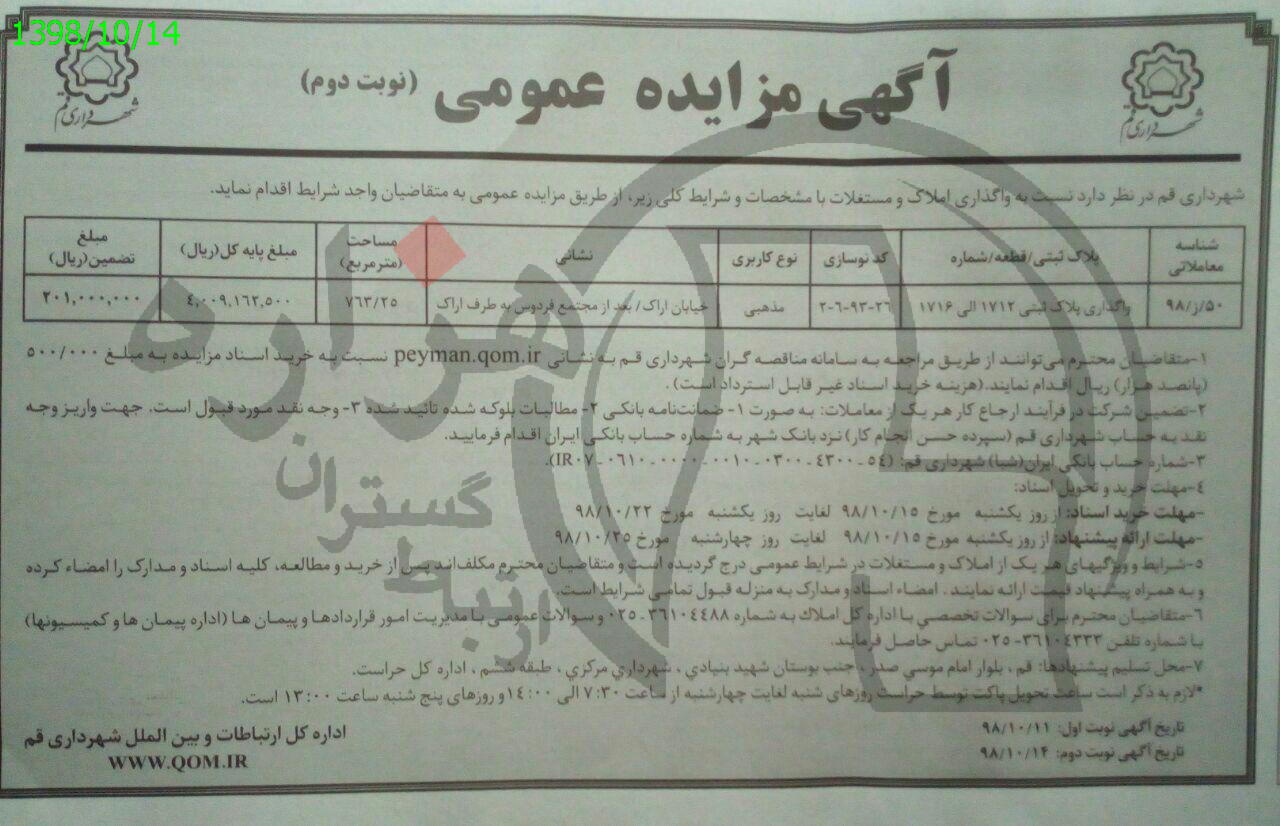 1398/10/14
آگهی مزایده عمومی (نوبت دوم)
شهرداری قم
شهرداری قم
شهرداری قم در نظر دارد نسبت به واگذاری املاک و مستغلات با مشخصات و شرایط کلی زیر، از طریق مزایده عمومی به متقاضیان واجد شرایط اقدام نماید.
شناسه معاملاتی | پلاک ثبتی/قطعه/شماره | کد نوسازی | نوع کاربری | نشانی | مساحت (مترمربع) | مبلغ پایه کل(ریال) | مبلغ تضمین(ریال)
۵۰/ز/۹۸ | واگذاری پلاک ثبتی ۱۷۱۲ الی ۱۷۱۶ | ۲-۶-۹۳-۲۶ | مذهبی | خیابان اراک/ بعد از مجتمع فردوس به طرف اراک | ۷۶۳/۲۵ | ۴,۰۰۹,۱۶۲,۵۰۰ | ۲۰۱,۰۰۰,۰۰۰
۱-متقاضیان محترم می‌توانند از طریق مراجعه به سامانه مناقصه گران شهرداری قم به نشانی peyman.qom.ir نسبت به خرید اسناد مزایده به مبلغ ۵۰۰/۰۰۰
(پانصد هزار) ریال اقدام نمایند.(هزینه خرید اسناد غیر قابل استرداد است) .
۲-تضمین شرکت در فرآیند ارجاع کار هر یک از معاملات: به صورت ۱- ضمانت‌نامه بانکی ۲- مطالبات بلوکه شده تائید شده ۳- وجه نقد مورد قبول است. جهت واریز وجه
نقد به حساب شهرداری قم (سپرده حسن انجام کار) نزد بانک شهر به شماره حساب بانکی ایران اقدام فرمایید.
۳-شماره حساب بانکی ایران(شبا) شهرداری قم: (۵۴ - ۴۳۰۰ - ۰۳۰۰ - ۰۰۱۰ - ۰۰۰۰ - ۰۶۱۰ - IR۰۷).
۴-مهلت خرید و تحویل اسناد:
-مهلت خرید اسناد: از روز یکشنبه مورخ ۹۸/۱۰/۱۵ لغایت روز یکشنبه مورخ ۹۸/۱۰/۲۲
-مهلت ارائه پیشنهاد: از روز یکشنبه مورخ ۹۸/۱۰/۱۵ لغایت روز چهارشنبه مورخ ۹۸/۱۰/۲۵
۵-شرایط و ویژگیهای هر یک از املاک و مستغلات در شرایط عمومی درج گردیده است و متقاضیان محترم مکلف‌اند پس از خرید و مطالعه، کلیه اسناد و مدارک را امضاء کرده
و به همراه پیشنهاد قیمت ارائه نمایند . امضاء اسناد و مدارک به منزله قبول تمامی شرایط است.
۶-متقاضیان محترم برای سوالات تخصصی با اداره کل املاک به شماره ۳۶۱۰۴۴۸۸ - ۰۲۵ و سوالات عمومی با مدیریت امور قراردادها و پیمان ها (اداره پیمان ها و کمیسیونها)
با شماره تلفن ۳۶۱۰۴۳۳۳- ۰۲۵ تماس حاصل فرمایند.
۷-محل تسلیم پیشنهادها: قم ، بلوار امام موسی صدر ، جنب بوستان شهید بنیادی ، شهرداری مرکزی ، طبقه ششم ، اداره کل حراست.
*لازم به ذکر است ساعت تحویل پاکت توسط حراست روزهای شنبه لغایت چهارشنبه از ساعت ۷:۳۰ الی ۱۴:۰۰ و روزهای پنج شنبه ساعت ۱۳:۰۰ است.
تاریخ آگهی نوبت اول: ۹۸/۱۰/۱۱
تاریخ آگهی نوبت دوم: ۹۸/۱۰/۱۴
اداره کل ارتباطات و بین الملل شهرداری قم
WWW.QOM.IR
هزاره
گستران
ارتباط